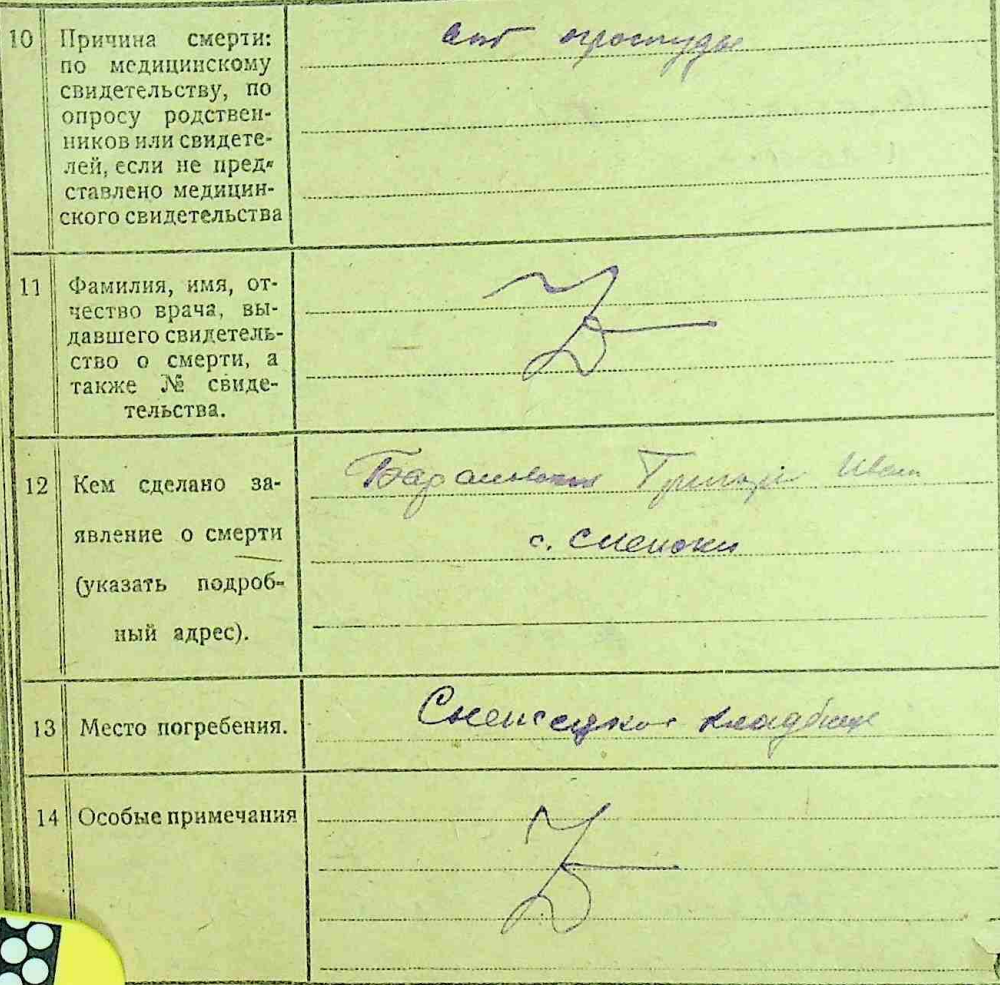 10 Причина смерти:
по медицинскому
свидетельству, по
опросу родствен-
ников или свидете-
лей, если не пред-
ставлено медицин-
ского свидетельства
от простуды
11 Фамилия, имя, от-
чество врача, вы-
давшего свидетель-
ство о смерти, а
также № свиде-
тельства.
12 Кем сделано за-
явление о смерти
(указать подроб-
ный адрес).
Григорий Иван
с.
13 Место погребения.
кладбище
14 Особые примечания